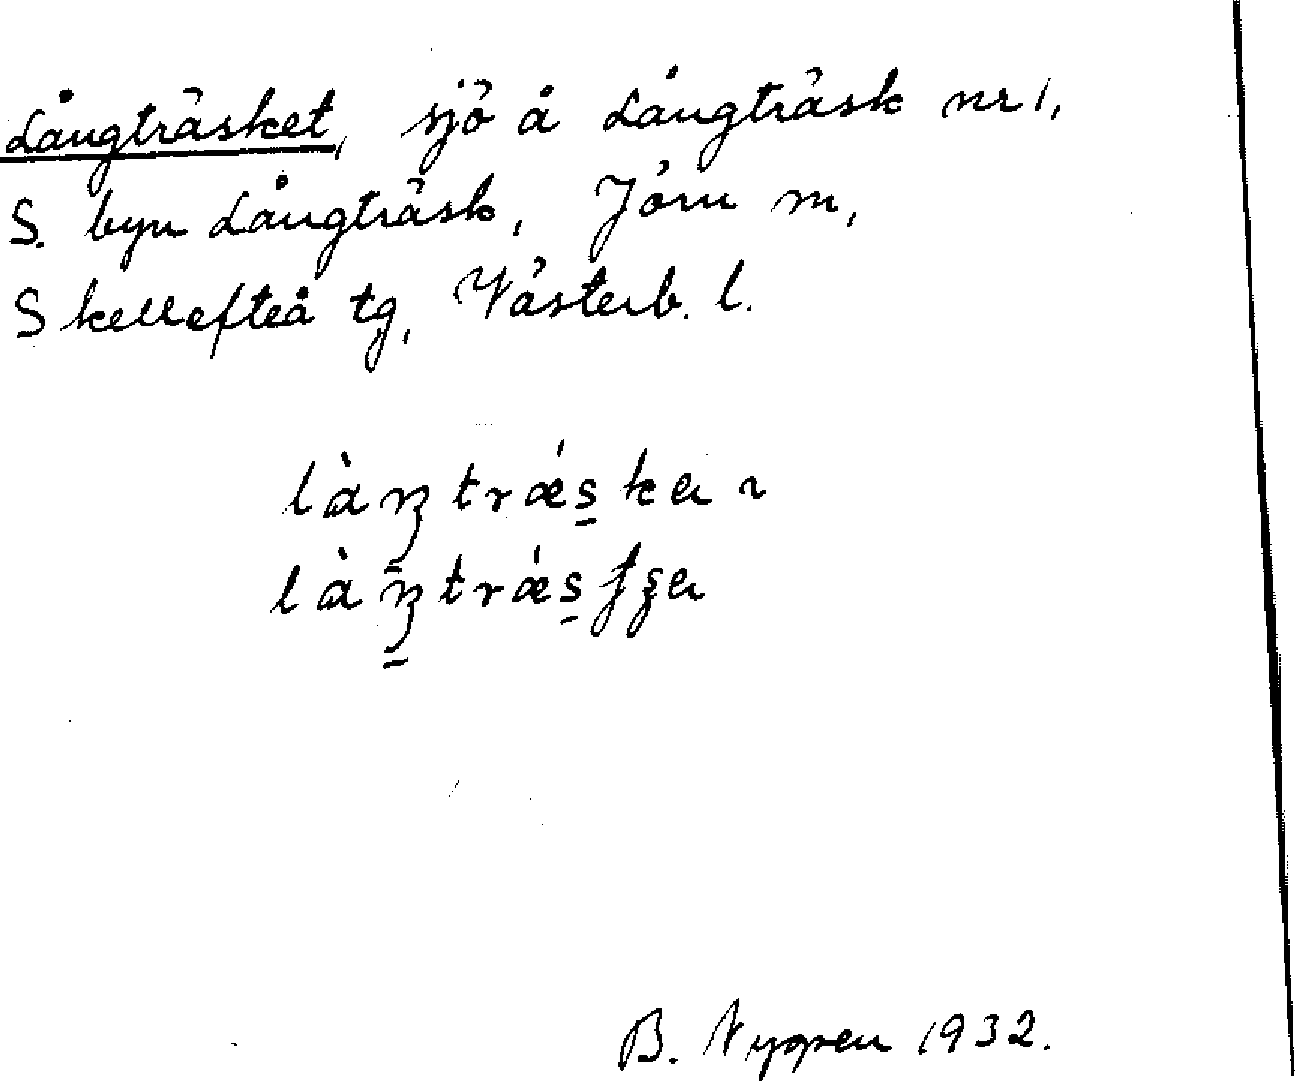 Långträsket, sjö å Långträsk nr 1,
S. byn Långträsk, Jörn m,
Skellefteå tg, Västerb. l.
làŋtrǽs̠ka ~
làŋ̠trǽs̠ʃʂa
B. Nygren 1932.